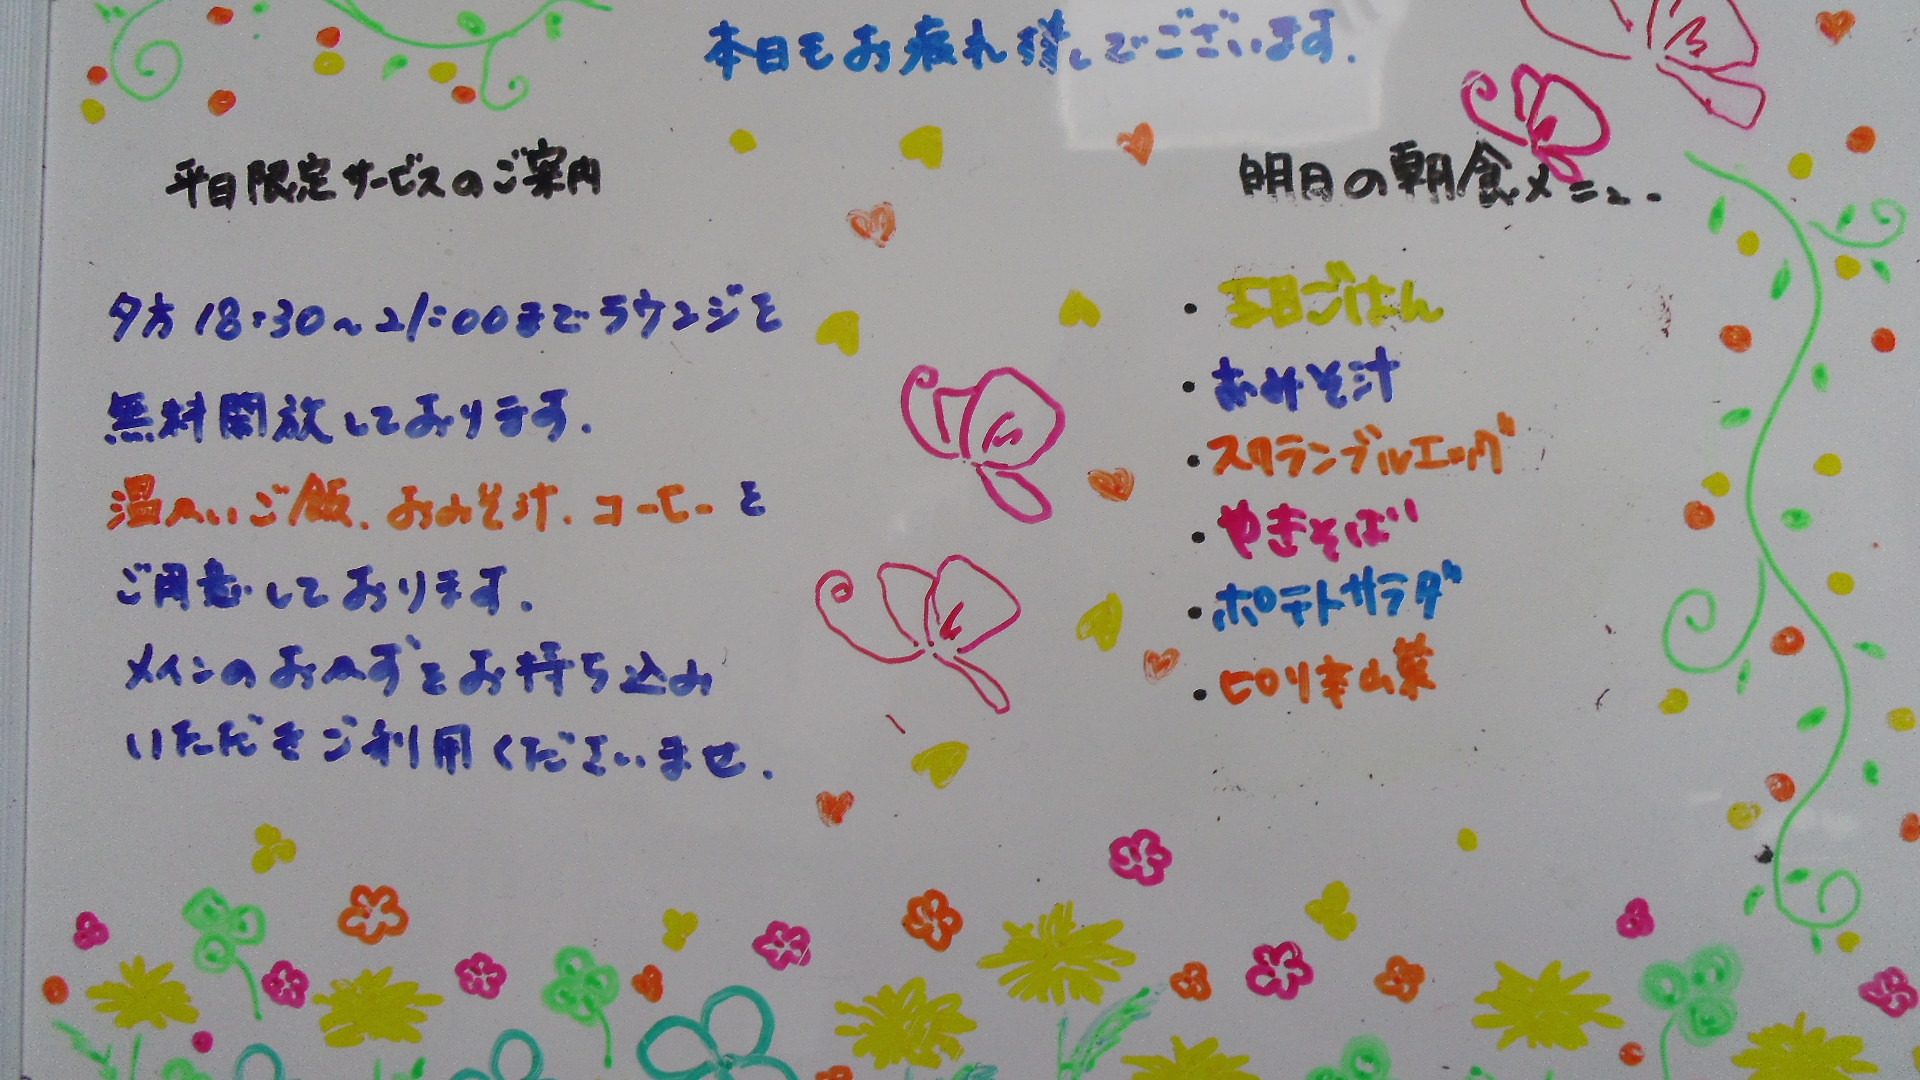 本日もお疲れ様でございます.
平日限定サービスのご案内
夕方18:30~21:00までラウンジを
無料開放しております.
温かいご飯、おみそ汁、コーヒーを
ご用意しております.
メインのおかずをお持ち込み
いただきご利用くださいませ.
明日の朝食メニュー
・五目ごはん
・おみそ汁
・スクランブルエッグ
・やきそば
・ポテトサラダ
・ピリ辛山菜